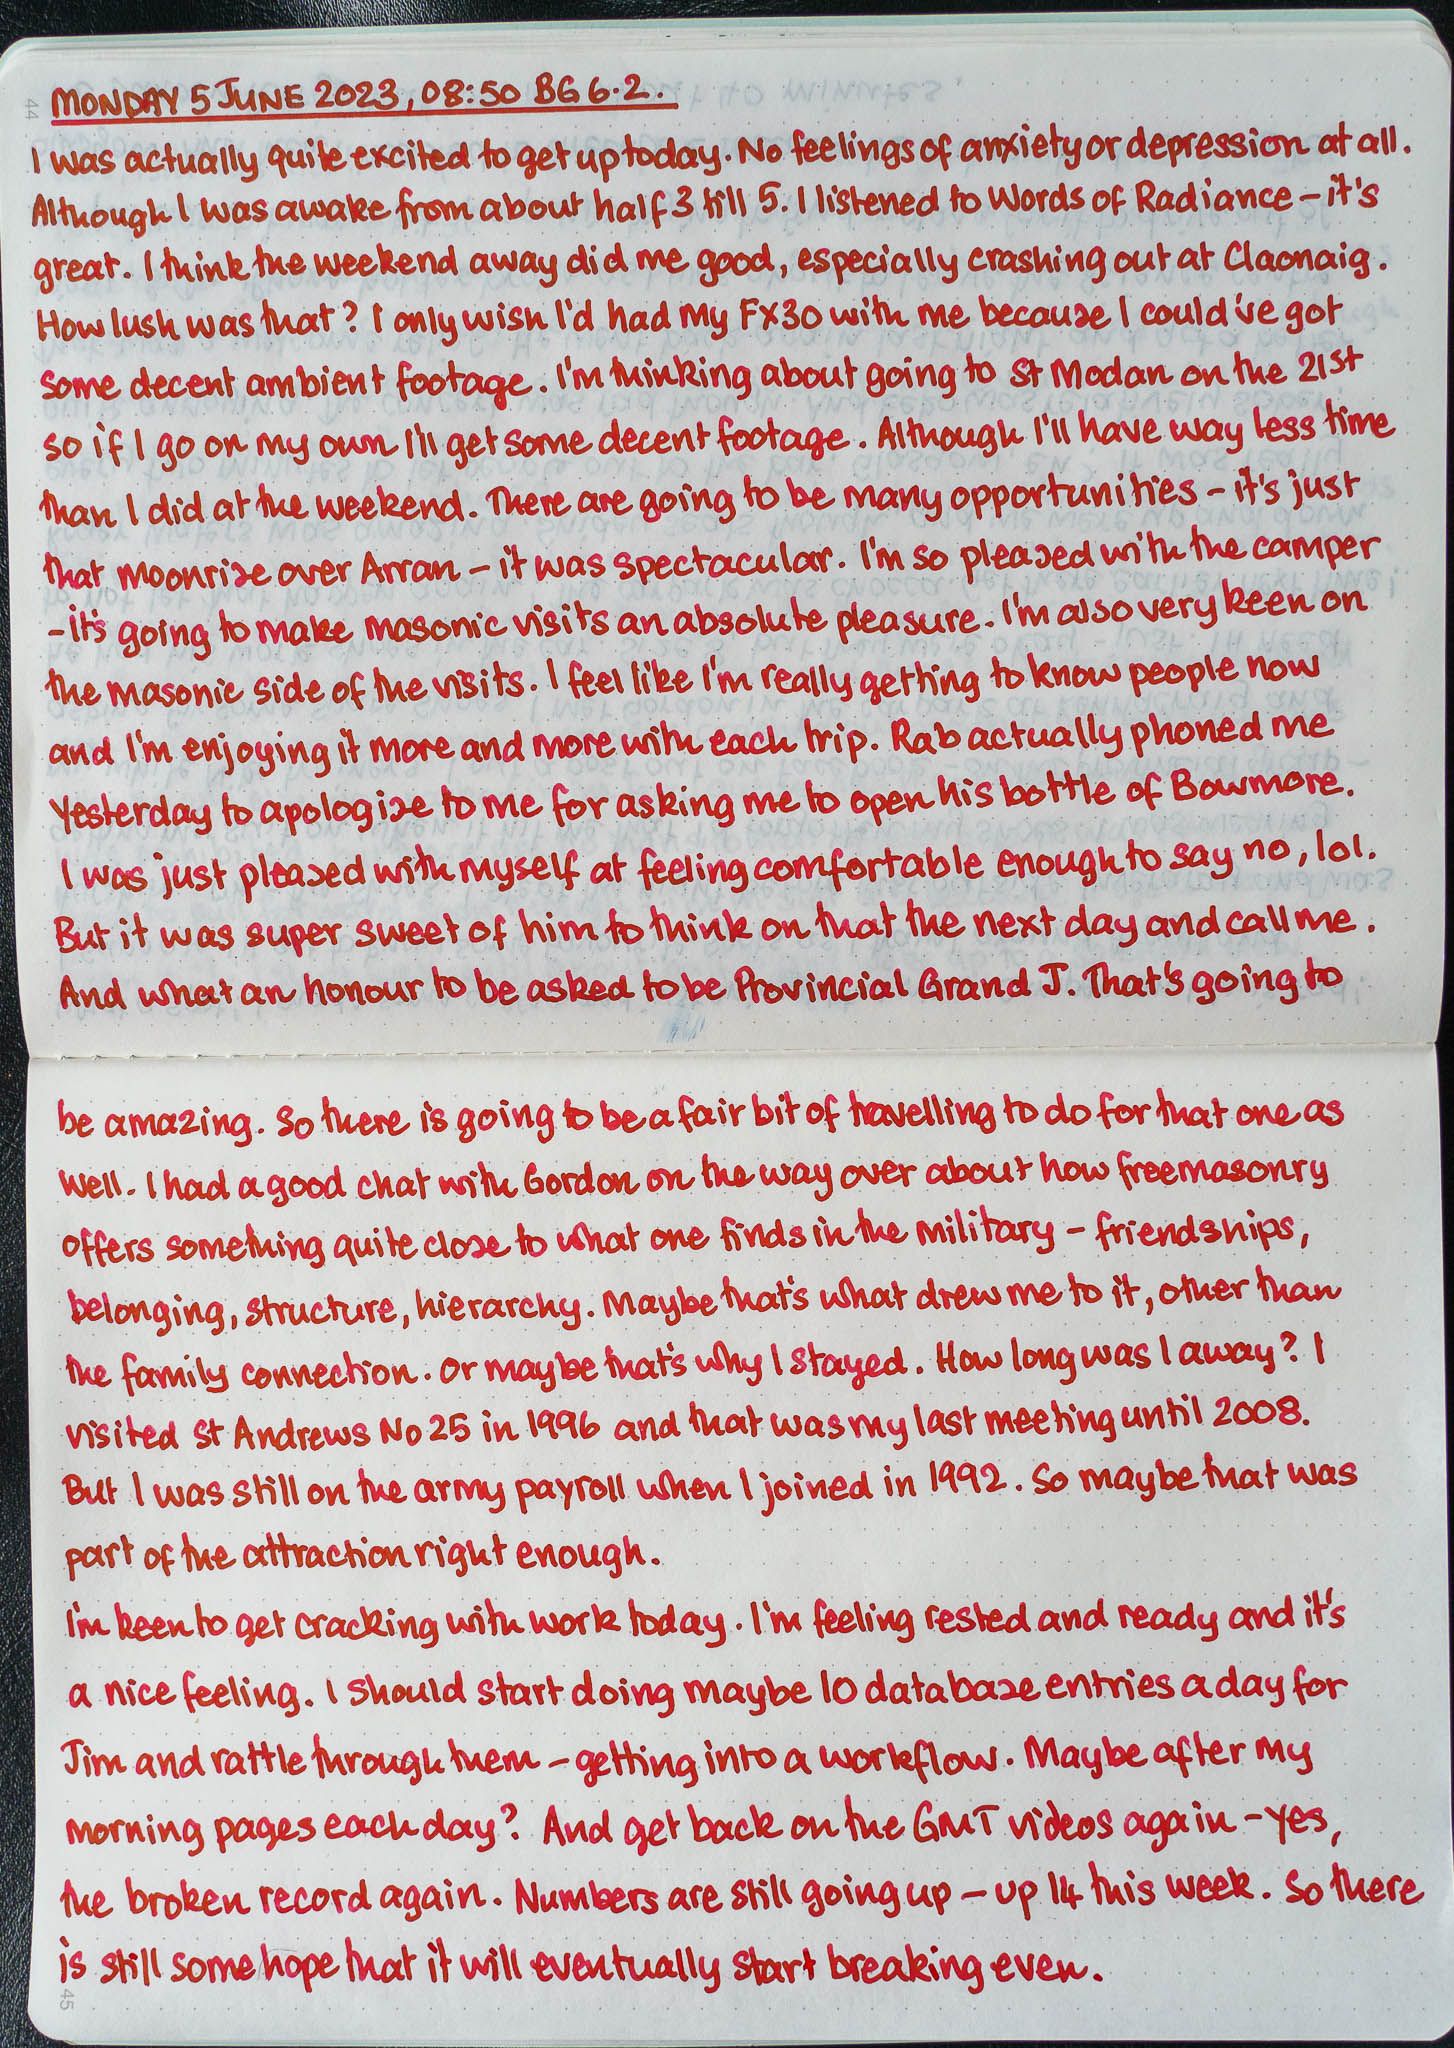 MONDAY 5 JUNE 2023, 08:50 BG 6.2.
I was actually quite excited to get up today. No feelings of anxiety or depression at all.
Although I was awake from about half 3 till 5. I listened to Words of Radiance – it's
great. I think the weekend away did me good, especially crashing out at Claonaig.
How lush was that? I only wish I'd had my FX30 with me because I could've got
some decent ambient footage. I'm thinking about going to St Modan on the 21st
so if I go on my own I'll get some decent footage. Although I'll have way less time
than I did at the weekend. There are going to be many opportunities – it's just
that moonrise over Arran – it was spectacular. I'm so pleased with the camper
– it's going to make masonic visits an absolute pleasure. I'm also very keen on
the masonic side of the visits. I feel like I'm really getting to know people now
and I'm enjoying it more and more with each trip. Rab actually phoned me
yesterday to apologise to me for asking me to open his bottle of Bowmore.
I was just pleased with myself at feeling comfortable enough to say no, lol.
But it was super sweet of him to think on that the next day and call me.
And what an honour to be asked to be Provincial Grand J. That's going to
be amazing. So there is going to be a fair bit of travelling to do for that one as
well. I had a good chat with Gordon on the way over about how freemasonry
offers something quite close to what one finds in the military – friendships,
belonging, structure, hierarchy. Maybe that's what drew me to it, other than
the family connection. Or maybe that's why I stayed. How long was I away? I
visited St Andrews No 25 in 1996 and that was my last meeting until 2008.
But I was still on the army payroll when I joined in 1992. So maybe that was
part of the attraction right enough.
I'm keen to get cracking with work today. I'm feeling rested and ready and it's
a nice feeling. I should start doing maybe 10 database entries a day for
Jim and rattle through them – getting into a workflow. Maybe after my
morning pages each day? And get back on the GMT videos again – yes,
the broken record again. Numbers are still going up – up 14 this week. So there
is still some hope that it will eventually start breaking even.
44
45